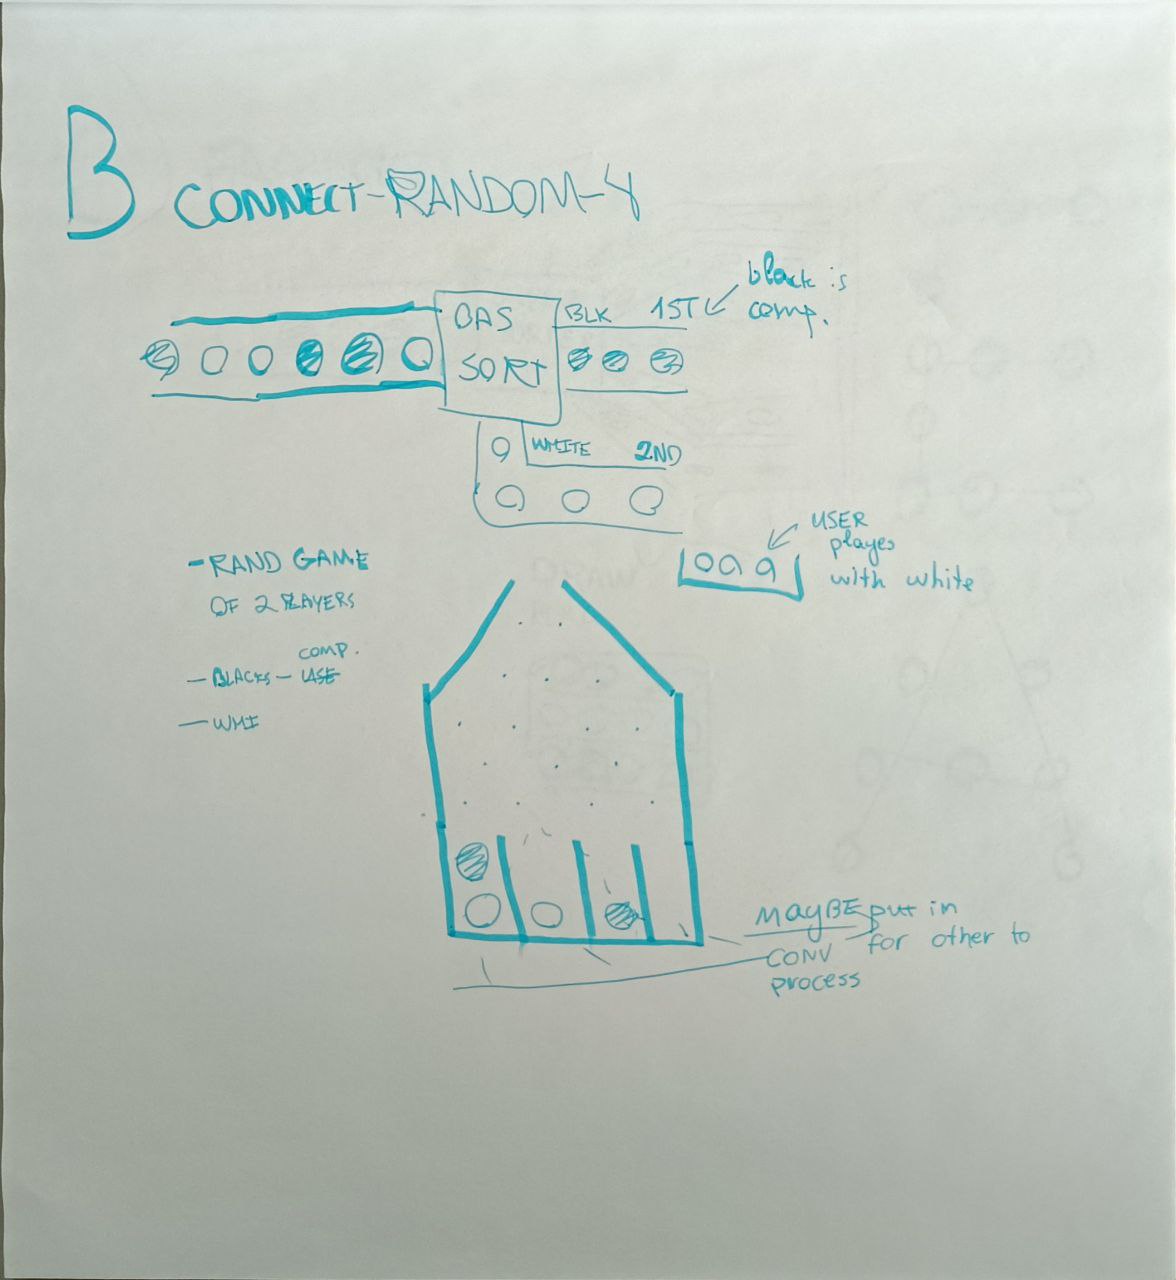 B
CONNECT-RANDOM-4
black is
comp.
BLK 1ST
SORT
WHITE 2ND
USER
player
with white
- RAND GAME
OF 2 PLAYERS
COMP.
- BLACKS - USE
- WHI
MAYBE put in
CONV for other to
process